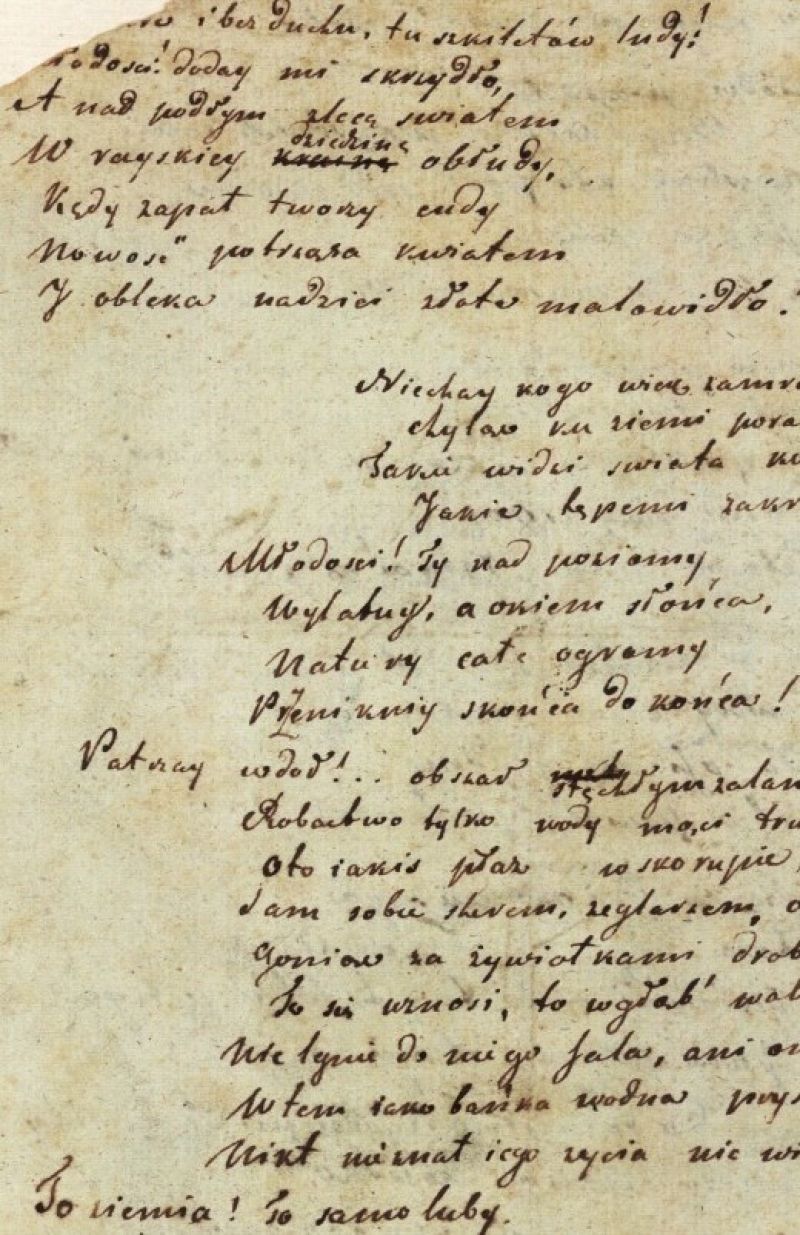 i bez duchu, tu szkiletów ludy!
doday mi skrzydło,
A nad podłym zlecę swiatem
W rayskiey krainę dziedzinę obłudy,
Kędy zapał tworzy cudy
Nowość potrząsa kwiatem
I obleka nadziei złote malowidło.
Niechay kogo wiek zamro
chyląc ku ziemi pora
Takie widzi swiata ko
Jakie tępemi zakr
Młodosci! Ty nad poziomy
Wylatuy, a okiem słońca,
Natury całe ogromy
Przeniknиy skońca do końca!
Patrzay wdoł!.. obszar stęchłym zalan
Robactwo tylko wody męci tru
Oto iakis płaz wskorupie
Sam sobie sterem, zeglarzem, o
Goniąc za żywiołkami drob
To się wznosi, to wgłąb wal
Nie lgnie do niego fala, ani on
Wtem iako bańka wodna prys
Nikt nieznał iego zycia nie wi
To ziemia! To samoluby.